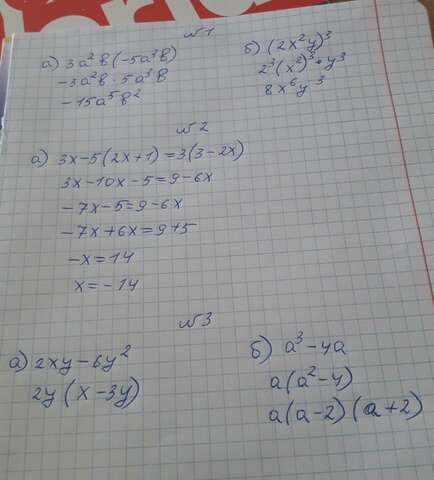 №1
а) 3a²b(-5a³b)
-3a²b·5a³b
-15a⁵b²
б) (2x²y)³
2³(x²)³·y³
8x⁶y³
№2
а) 3x-5(2x+1)=3(3-2x)
3x-10x-5=9-6x
-7x-5=9-6x
-7x+6x=9+5
-x=14
x=-14
№3
а) 2xy-6y²
2y(x-3y)
б) a³-4a
a(a²-4)
a(a-2)(a+2)